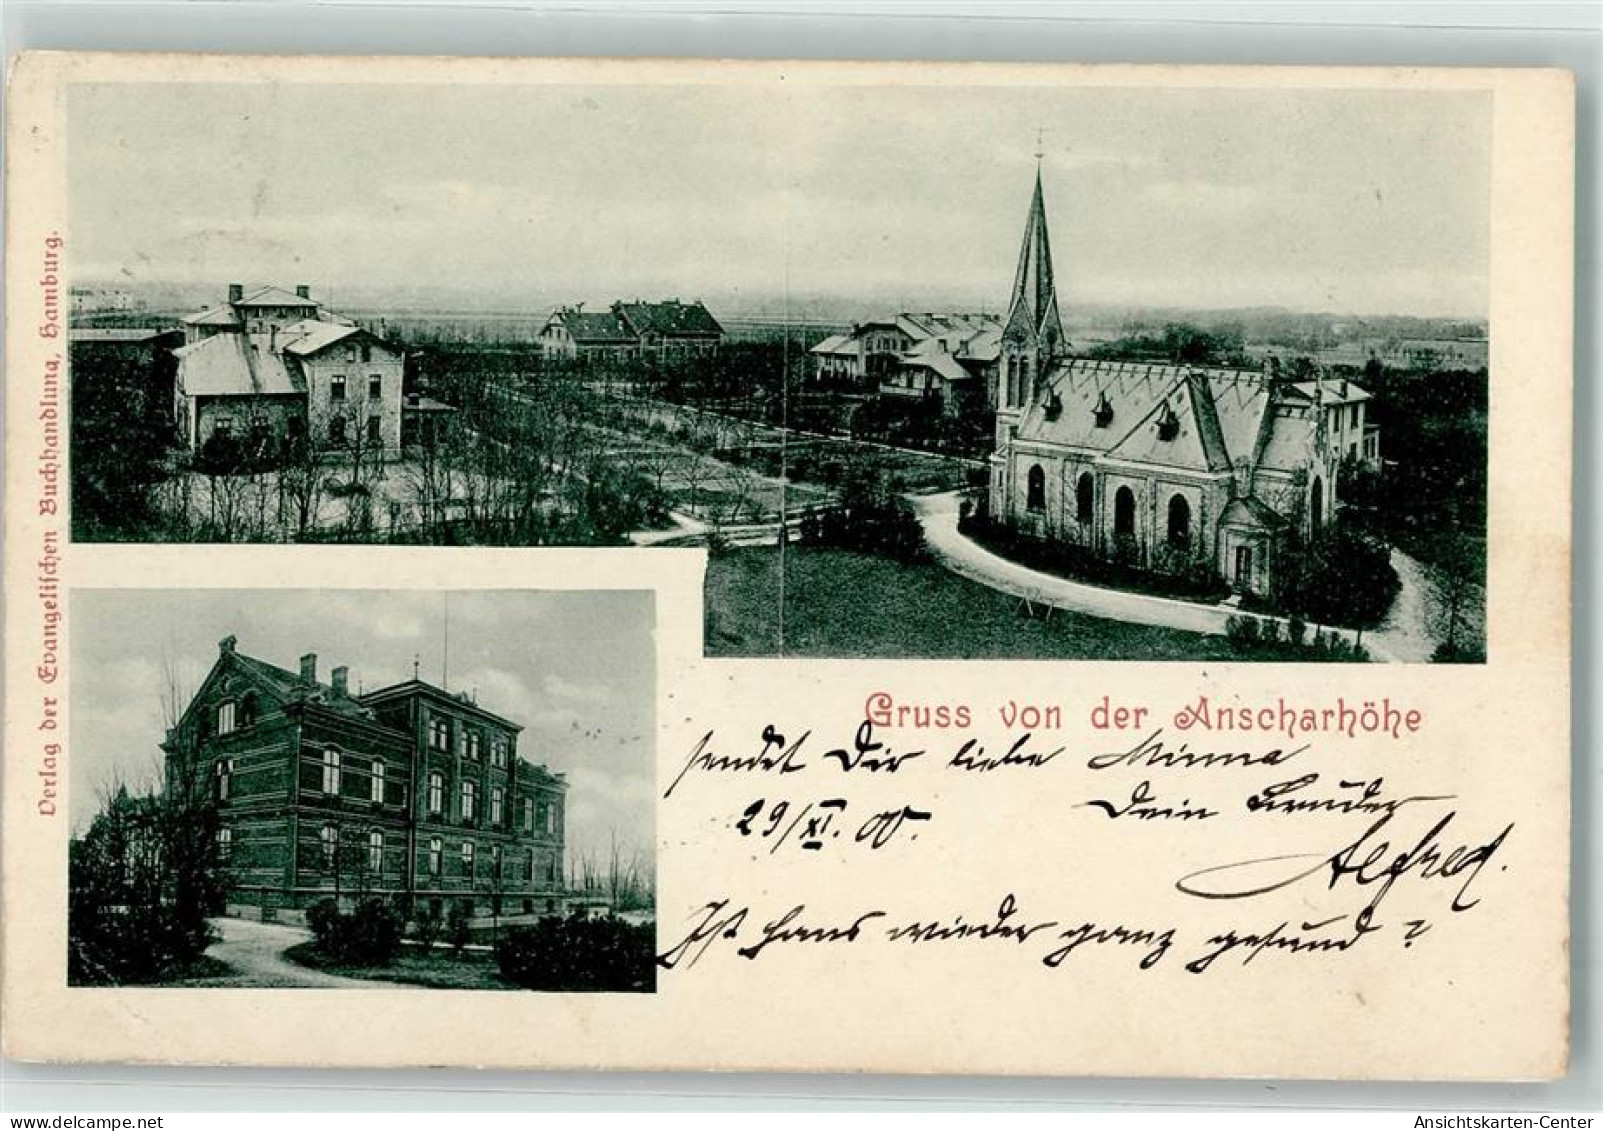 Verlag der Evangelischen Buchhandlung, Hamburg.
Gruss von der Anscharhöhe
sendet Dir liebe Minna
29/XI. 00. Dein Bruder
Alfred.
Ist Hans wieder ganz gesund?
Ansichtskarten-Center